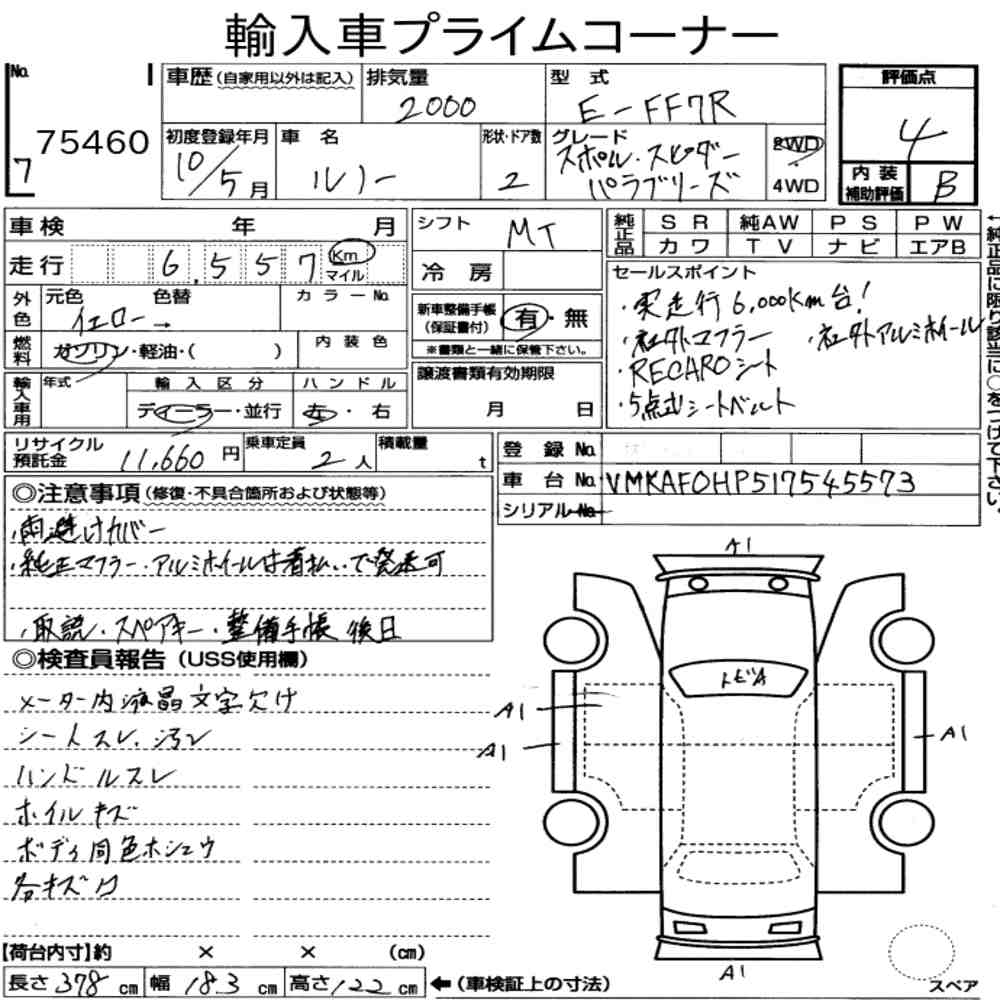 輸入車プライムコーナー
No.
7 75460
車歴(自家用以外は記入)
排気量 2000
型式 E-FF7R
初度登録年月 10/5月
車名 ルノー
形状・ドア数 2
グレード スポル・スピダー パラブリーズ
2WD
4WD
評価点 4
内装補助評価 B
車検 年 月
走行 6,557 Km マイル
外色 元色 イエロー→ 色替 カラーNo.
燃料 ガソリン・軽油・( ) 内装色
輸入車用 年式 輸入区分 ディーラー・並行 ハンドル 左・右
シフト MT
冷房
新車整備手帳(保証書付) 有・無
※書類と一緒に保管下さい。
譲渡書類有効期限
月 日
純正品 SR 純AW PS PW
カワ TV ナビ エアB
セールスポイント
・実走行6,000Km台!
・社外マフラー ・社外アルミホイール
・RECAROシート
・5点式シートベルト
←純正品に限り該当に○をつけて下さい。
リサイクル預託金 11,660円
乗車定員 2人
積載量 t
登録No.
車台No. VMKAF0HP517545573
シリアルNo.
◎注意事項(修復・不具合箇所および状態等)
・雨避けカバー
・純正マフラー・アルミホイールは着払いで発送可
・取説・スペアキー・整備手帳 後日
◎検査員報告(USS使用欄)
メーター内液晶文字欠け
シートスレ、汚レ
ハンドルスレ
ホイルキズ
ボディ同色ホシュウ
各キズ凹
A1
トビA
A1
A1
A1
A1
スペア
【荷台内寸】約 × × (cm)
長さ 378 cm 幅 183 cm 高さ 122 cm ←(車検証上の寸法)